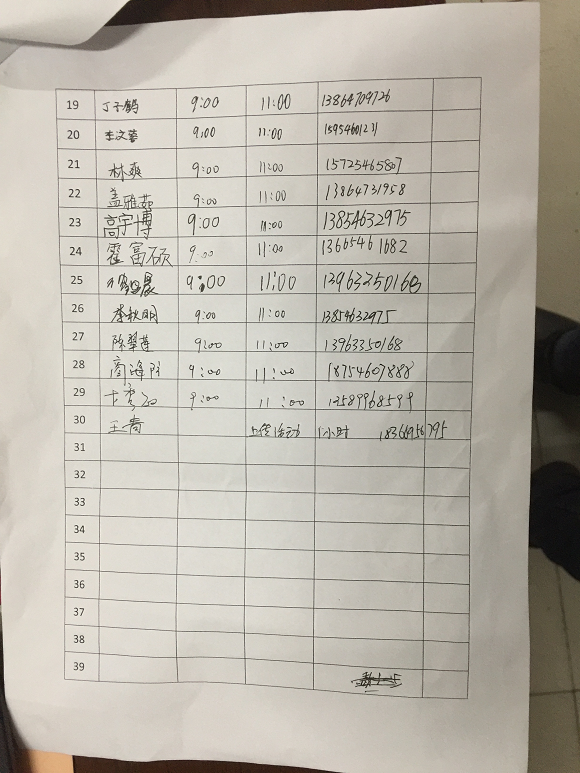 19 丁子鹤 9:00 11:00 13864709726
20 李文蓉 9:00 11:00 15954601271
21 林爽 9:00 11:00 15725465807
22 盖雅茹 9:00 11:00 13864731958
23 高宇博 9:00 11:00 13854632975
24 霍富硕 9:00 11:00 13665461682
25 9:00 11:00 13963350168
26 李秋明 9:00 11:00 13854632975
27 陈翠莲 9:00 11:00 13963350168
28 9:00 11:00 18754607888
29 9:00 11:00 13589968599
30 王青 上传活动 1小时 18366956795
31
32
33
34
35
36
37
38
39